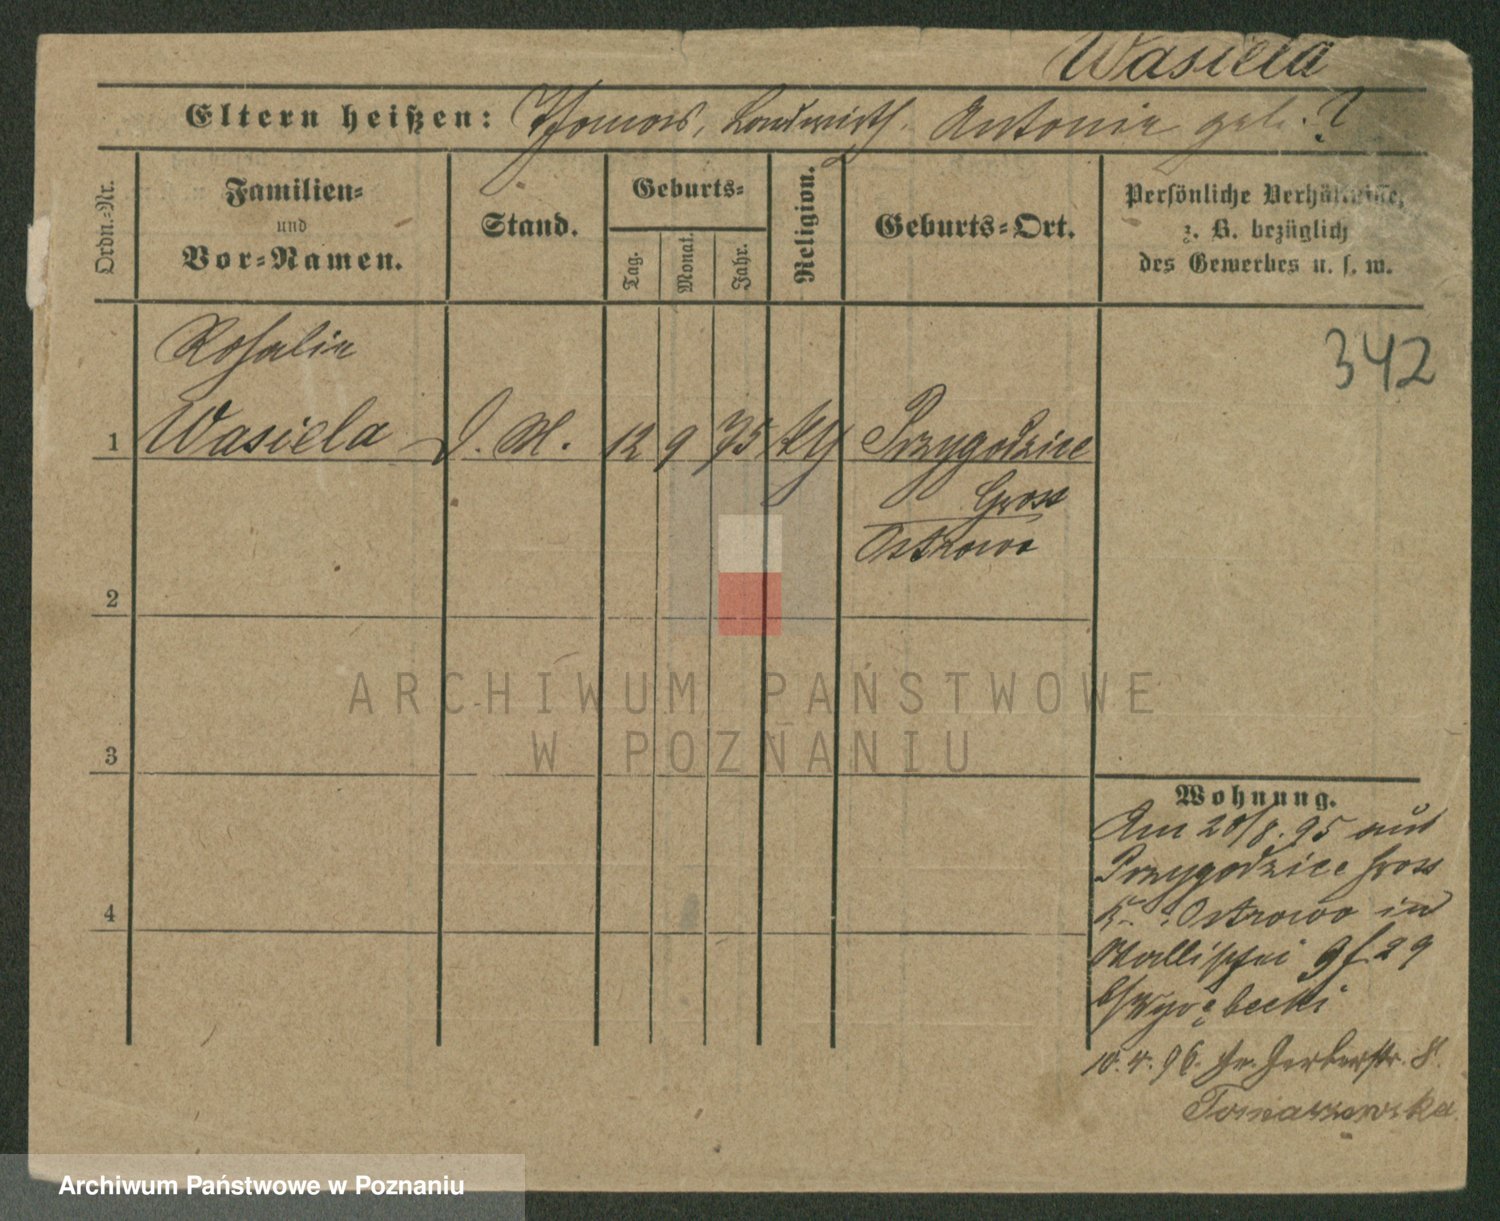 Wasiela
Eltern heißen: Thomas, Landwirth. Antonie geb. ?
Ordn.-Nr.
Familien-
und
Vor-Namen.
Stand.
Geburts-
Tag.
Monat.
Jahr.
Religion.
Geburts-Ort.
Persönliche Verhältnisse,
z. B. bezüglich
des Gewerbes u. s. w.
342
Rosalie
1 Wasiela D. M. 12 9 75 kth Przygodzice
Gross
Ostrowo
2
ARCHIWUM PAŃSTWOWE
W POZNANIU
3
Wohnung.
Am 20/8. 95 aus
Przygodzice Gross
4
K. Ostrowo in
Wallischei 29
10. 4. 96. Gr. Gerberstr. 8.
Tomaszewska
Archiwum Państwowe w Poznaniu